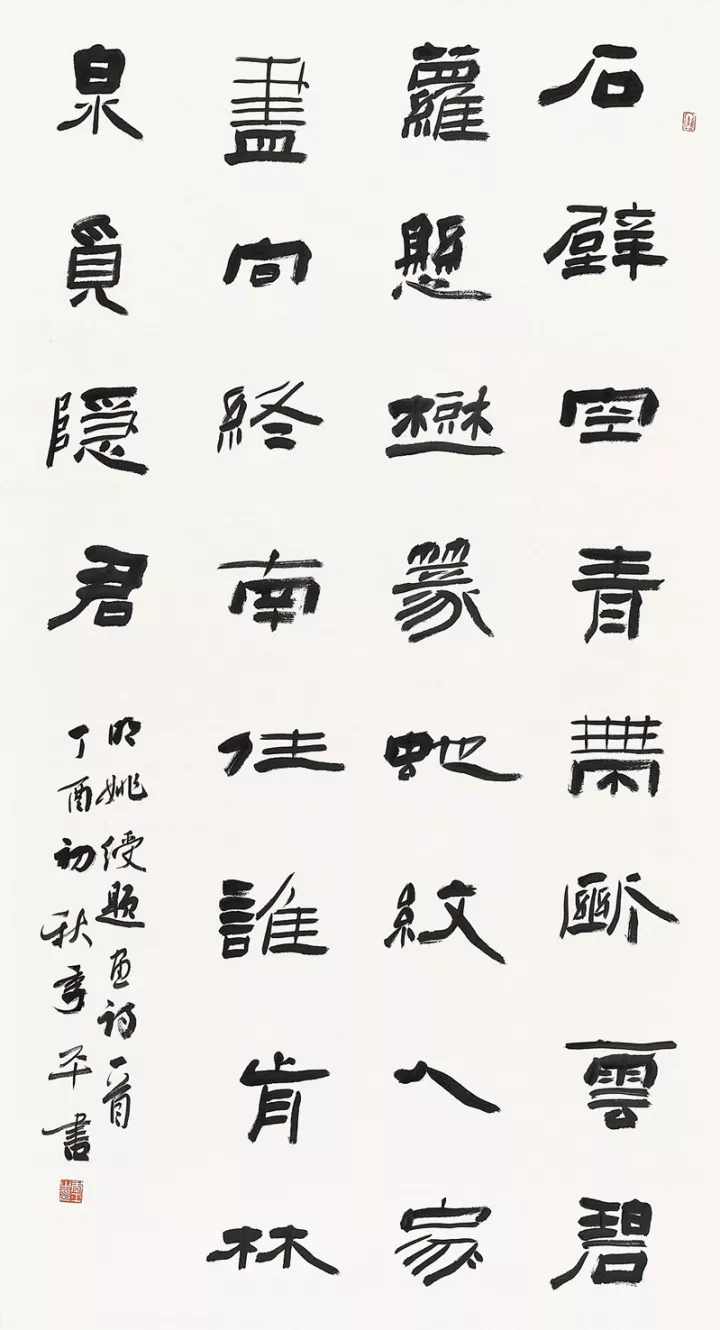 石壁空青帶斷雲碧
蘿懸篆虵紋人家
盡向終南住誰肯林
泉覓隱君
明姚綬題畫詩一首
丁酉初秋平書